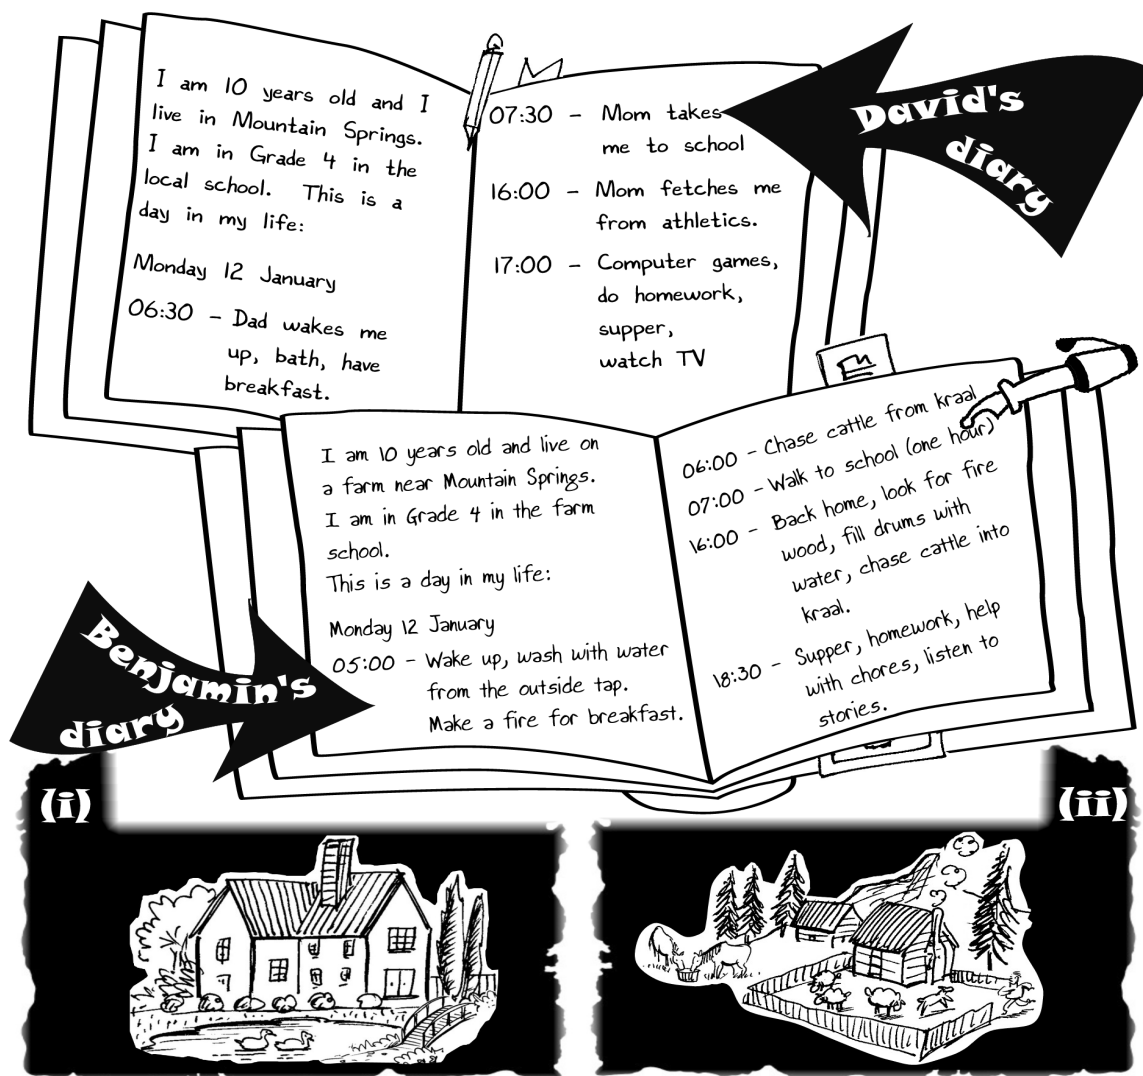 I am 10 years old and I
live in Mountain Springs.
I am in Grade 4 in the
local school. This is a
day in my life:
Monday 12 January
06:30 - Dad wakes me
up, bath, have
breakfast.
07:30 - Mom takes
me to school
16:00 - Mom fetches me
from athletics.
17:00 - Computer games,
do homework,
supper,
watch TV
David's
diary
I am 10 years old and live on
a farm near Mountain Springs.
I am in Grade 4 in the farm
school.
This is a day in my life:
Monday 12 January
05:00 - Wake up, wash with water
from the outside tap.
Make a fire for breakfast.
06:00 - Chase cattle from kraal
07:00 - Walk to school (one hour)
16:00 - Back home, look for fire
wood, fill drums with
water, chase cattle into
kraal.
18:30 - Supper, homework, help
with chores, listen to
stories.
Benjamin's
diary
(i)
(ii)